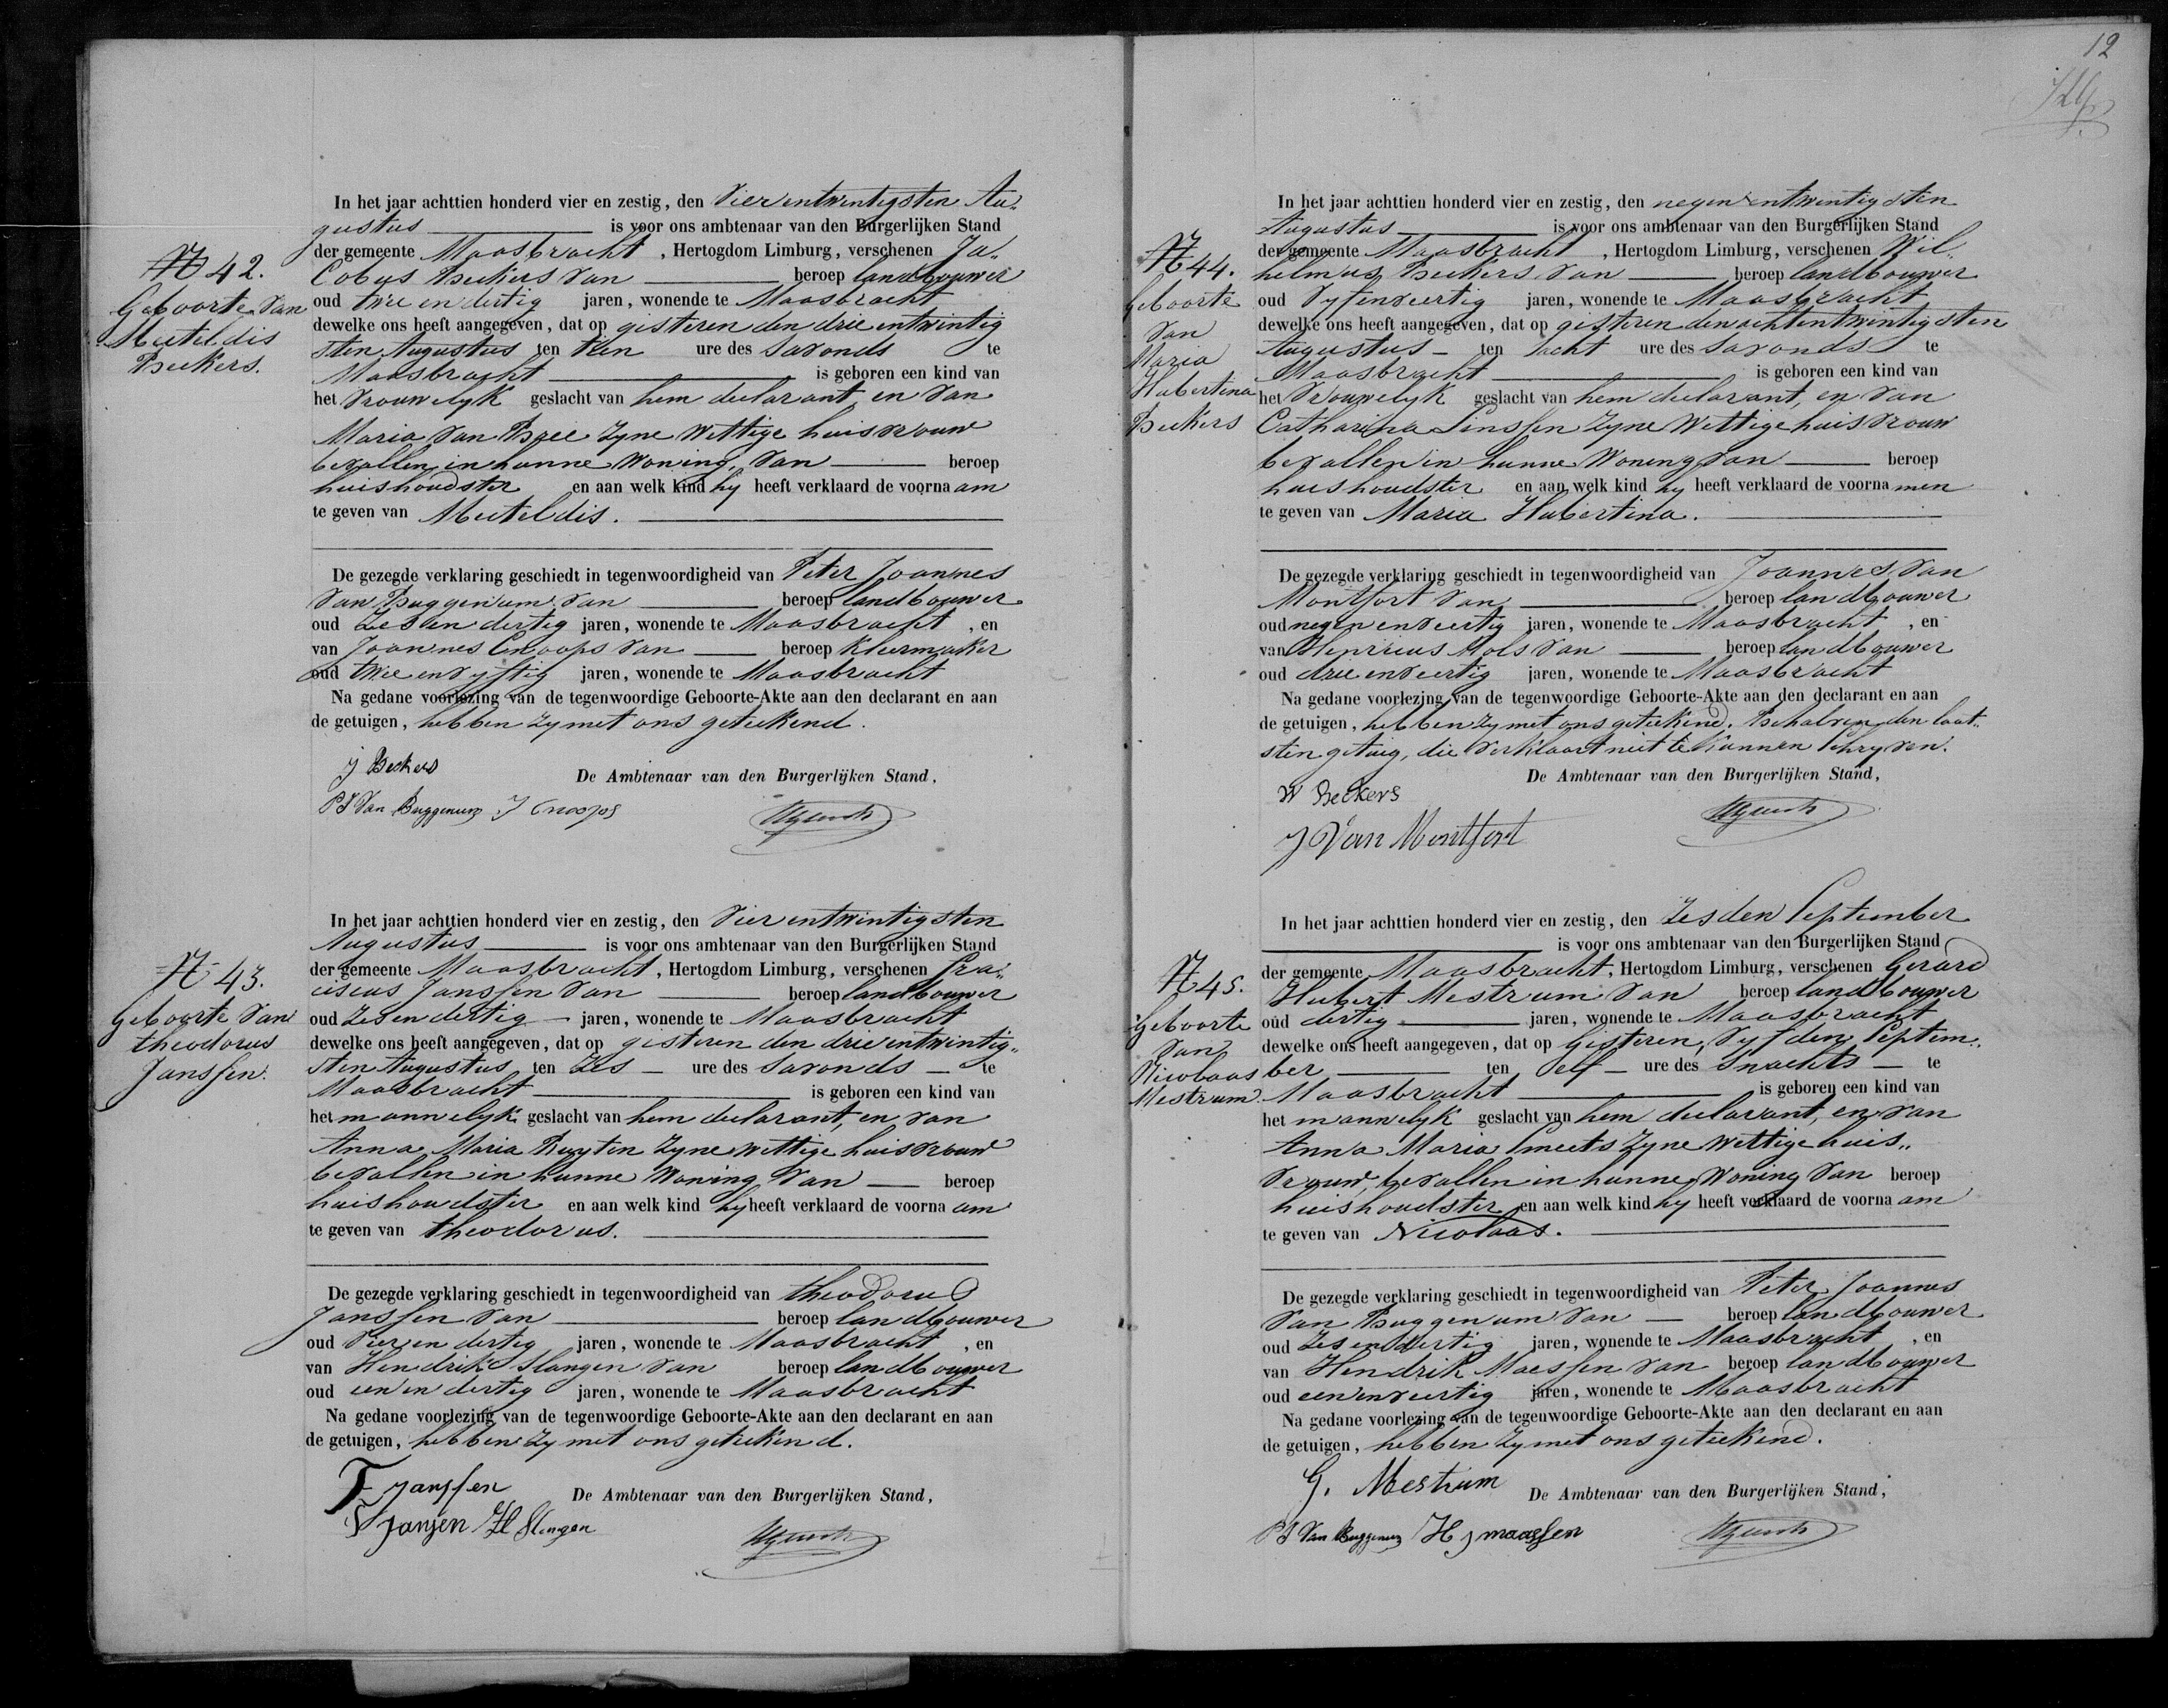 In het jaar achttien honderd vier en zestig, den vier entwintigsten Au„
gustus is voor ons ambtenaar van den Burgerlijken Stand
der gemeente Maasbracht, Hertogdom Limburg, verschenen Ja„
Cobus Beckers van beroep landbouwer
oud twee en dertig jaren, wonende te Maasbracht
dewelke ons heeft aangegeven, dat op gisteren den drie entwintig
sten Augustus ten tien ure des savonds te
Maasbracht is geboren een kind van
het vrouwelyk geslacht van hem declarant, en van
Maria van Bree zyne wettige huisvrouw
bevallen in hunne woning, van beroep
huishoudster en aan welk kind hy heeft verklaard de voornaam
te geven van Meteldis.
N 42.
Geboorte van
Meteldis
Beckers.
De gezegde verklaring geschiedt in tegenwoordigheid van Peter Joannes
van Buggenum van beroep landbouwer
oud zes en dertig jaren, wonende te Maasbracht, en
van Joannes Cnoops van beroep Kleermaker
oud twee envyftig jaren, wonende te Maasbracht
Na gedane voorlezing van de tegenwoordige Geboorte-Akte aan den declarant en aan
de getuigen, hebben zy met ons geteekend.
J Beckers
De Ambtenaar van den Burgerlijken Stand,
P J Van Buggenum J Cnoops
In het jaar achttien honderd vier en zestig, den vier entwintigsten
Augustus is voor ons ambtenaar van den Burgerlijken Stand
der gemeente Maasbracht, Hertogdom Limburg, verschenen Fra„
ciscus Janssen van beroep landbouwer
oud zes en dertig jaren, wonende te Maasbracht
dewelke ons heeft aangegeven, dat op gisteren den drie entwintig„
sten Augustus ten zes ure des savonds te
Maasbracht is geboren een kind van
het mannelyk geslacht van hem declarant, en van
Anna Maria Ruyten zyne wettige huisvrouw
bevallen in hunne woning van beroep
huishoudster en aan welk kind hy heeft verklaard de voornaam
te geven van theodorus.
N 43.
Geboorte van
theodorus
Janssen.
De gezegde verklaring geschiedt in tegenwoordigheid van theodorus
Janssen van beroep landbouwer
oud vier en dertig jaren, wonende te Maasbracht, en
van Hendrik Slangen van beroep landbouwer
oud een en dertig jaren, wonende te Maasbracht
Na gedane voorlezing van de tegenwoordige Geboorte-Akte aan den declarant en aan
de getuigen, hebben zy met ons geteekend.
F Janssen
De Ambtenaar van den Burgerlijken Stand,
T Jansen H Slangen
12
In het jaar achttien honderd vier en zestig, den negen entwintigsten
Augustus is voor ons ambtenaar van den Burgerlijken Stand
der gemeente Maasbracht, Hertogdom Limburg, verschenen Wil„
helmus Beckers van beroep landbouwer
oud vyfenveertig jaren, wonende te Maasbracht
dewelke ons heeft aangegeven, dat op gisteren den achtentwintigsten
Augustus ten acht ure des savonds te
Maasbracht is geboren een kind van
het vrouwelyk geslacht van hem declarant, en van
Catharina Linssen zyne wettige huisvrouw
bevallen in hunne woning van beroep
huishoudster en aan welk kind hy heeft verklaard de voornamen
te geven van Maria Hubertina.
N 44.
Geboorte
van
Maria
Hubertina
Beckers
De gezegde verklaring geschiedt in tegenwoordigheid van Joannes van
Montfort van beroep landbouwer
oud negen enveertig jaren, wonende te Maasbracht, en
van Henricus Mols van beroep landbouwer
oud drie enveertig jaren, wonende te Maasbracht
Na gedane voorlezing van de tegenwoordige Geboorte-Akte aan den declarant en aan
de getuigen, hebben zy met ons geteekend. Behalven den laat„
sten getuig, die verklaart niet te kunnen schryven.
De Ambtenaar van den Burgerlijken Stand,
W Beckers
J Van Montfort
In het jaar achttien honderd vier en zestig, den zesden September
is voor ons ambtenaar van den Burgerlijken Stand
der gemeente Maasbracht, Hertogdom Limburg, verschenen Gerard
Hubert Mestrum van beroep landbouwer
oud dertig jaren, wonende te Maasbracht
dewelke ons heeft aangegeven, dat op Gisteren, vyfden Septem„
ber ten elf ure des snachts te
Maasbracht is geboren een kind van
het mannelyk geslacht van hem declarant, en van
Anna Maria Smeets zyne wettige huis„
vrouw, bevallen in hunne woning van beroep
huishoudster en aan welk kind hy heeft verklaard de voornaam
te geven van Nicolaas.
N 45.
Geboorte
van
Nicolaas
Mestrum.
De gezegde verklaring geschiedt in tegenwoordigheid van Peter Joannes
van Buggenum van beroep landbouwer
oud zes en dertig jaren, wonende te Maasbracht, en
van Hendrik Maessen van beroep landbouwer
oud een enveertig jaren, wonende te Maasbracht
Na gedane voorlezing van de tegenwoordige Geboorte-Akte aan den declarant en aan
de getuigen, hebben zy met ons geteekend.
G. Mestrum
De Ambtenaar van den Burgerlijken Stand,
P J Van Buggenum H J maassen